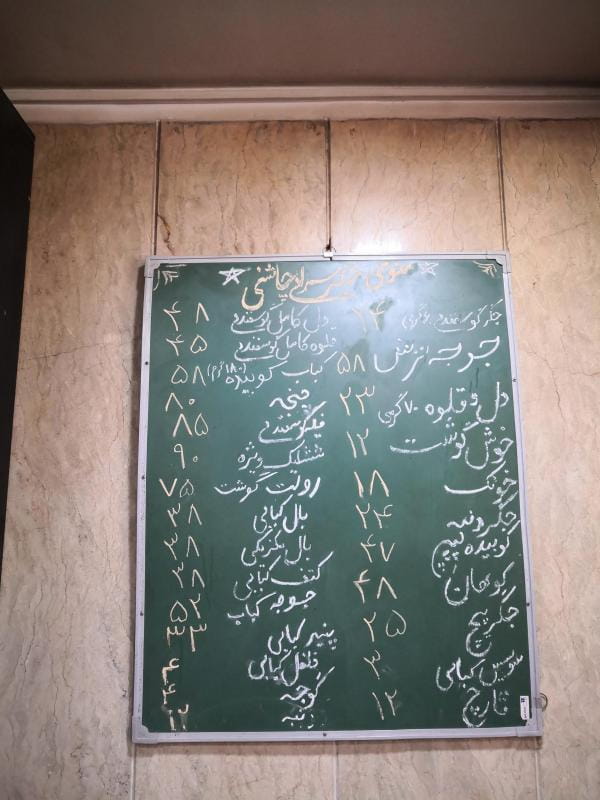 منوی جیگرسرای چاشنی
جگر گوسفندی ۷۰ گرمی ۲۴
جوجه ترش ۵۸
دل و قلوه ۷۰ گرمی ۲۳
خوش گوشت ۱۲
خونک ۱۸
جگر دنبه ۲۴
کوبیده پیچ ۴۷
کوهان ۴۸
جگر پیچ ۲۵
سوسیس کبابی ۳
قارچ ۱۲
دل کامل گوسفندی ۴۸
قلوه کامل گوسفندی ۴۵
کباب کوبیده (۱۸۰ گرم) ۵۸
چنجه ۸۰
فیله گوسفندی ۸۵
ششلیک ویژه ۹۰
گوشت ۷۵
بال کبابی ۳۸
بال مکزیکی ۳۸
کتف کبابی ۳۸
جوجه کباب ۵۲
پنیر کبابی ۳۳
فلفل کبابی
گوجه
دنبه